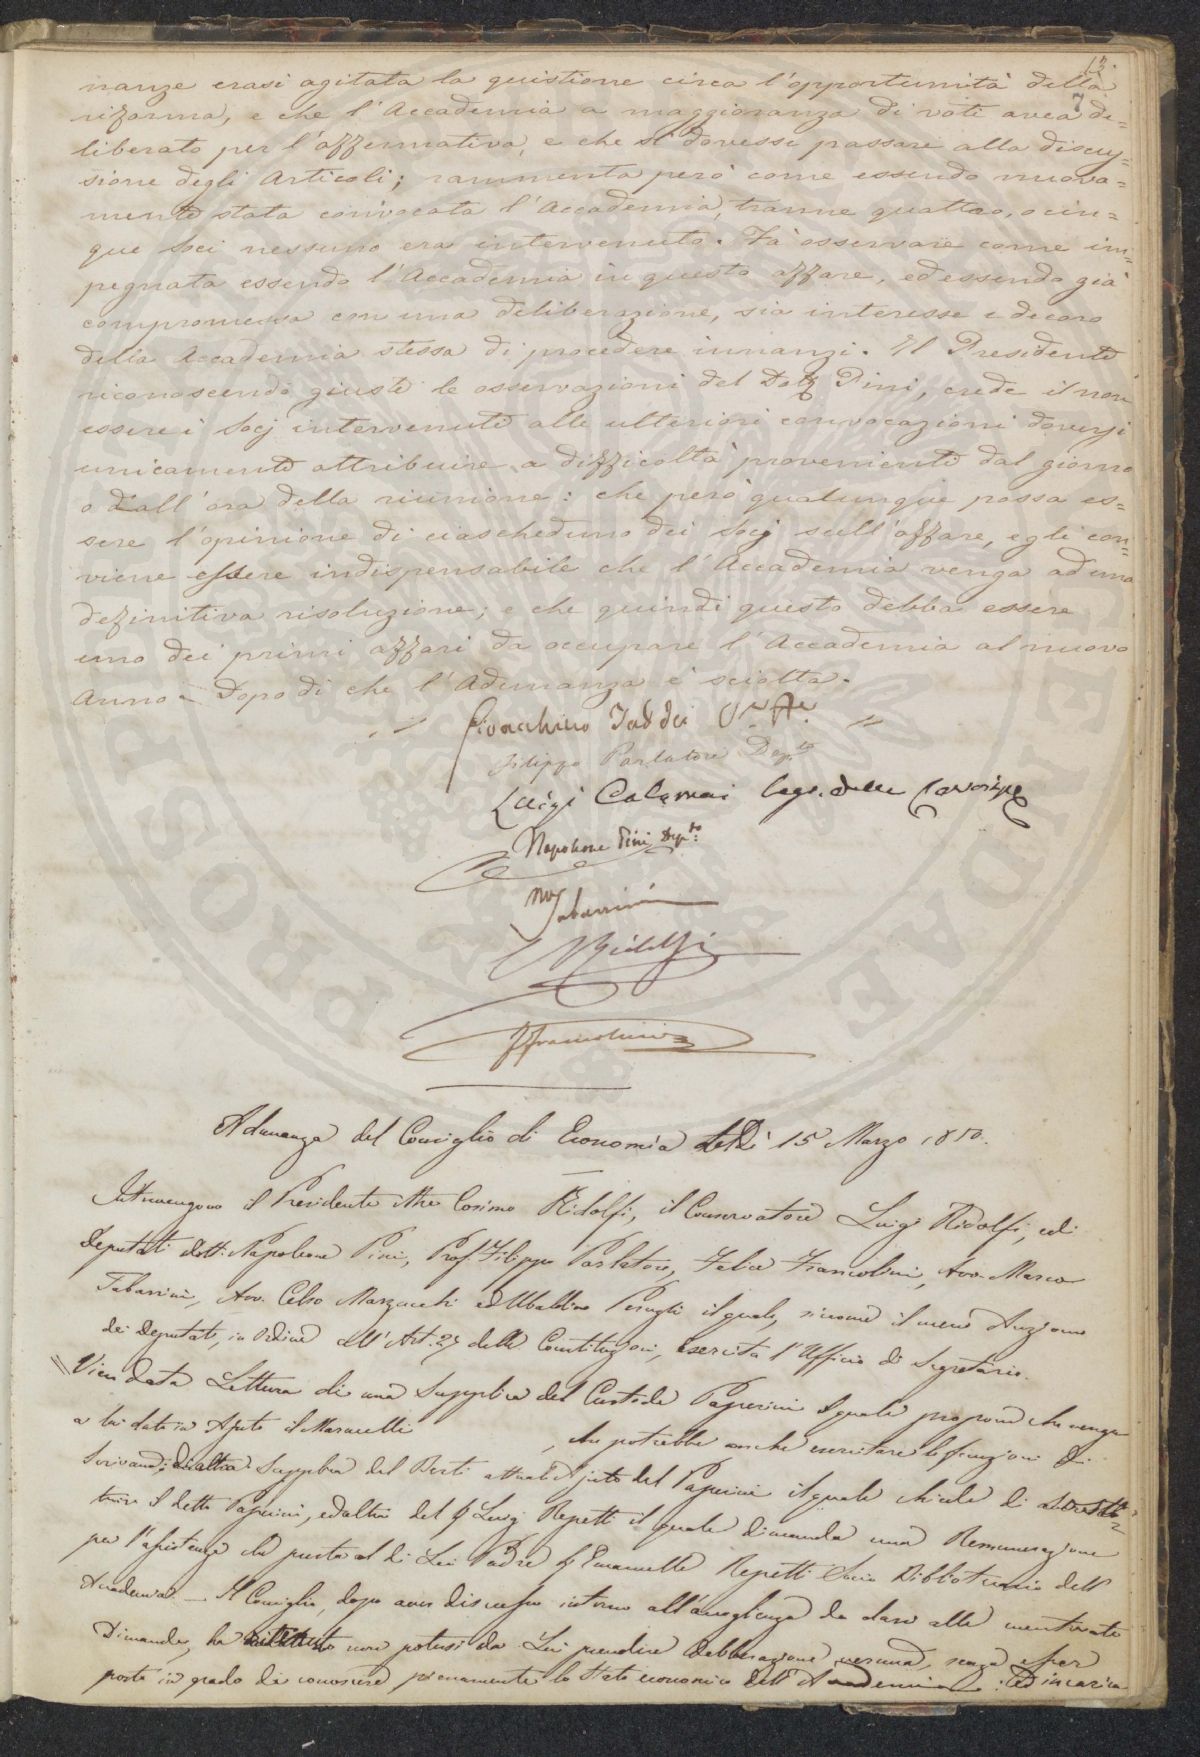 13.
7
nanze erasi agitata la quistione circa l'opportunità della
riforma, e che l'Accademia a maggioranza di voti avea de=
liberato per l'affermativa, e che si dovesse passare alla discus=
sione degli Articoli; rammenta però come essendo nuova=
mente stata convocata l'Accademia, tranne quattro, o cin=
que Soci nessuno era intervenuto. Fa osservare come im=
pegnata essendo l'Accademia in questo affare, ed essendo già
compromessa con una deliberazione, sia interesse e decoro
della Accademia stessa di procedere innanzi. Il Presidente
riconoscendo giuste le osservazioni del Dott. Pini, crede il non
essere i Socj intervenuti alle ulteriori convocazioni doversi
unicamente attribuire a difficoltà proveniente dal giorno
o dall'ora della riunione: che però qualunque possa es=
sere l'opinione di ciascheduno dei Socj sull'affare, egli con=
viene essere indispensabile che l'Accademia venga ad una
definitiva risoluzione; e che quindi questo debba essere
uno dei primi affari da occupare l'Accademia al nuovo
Anno. Dopo di che l'Adunanza è sciolta.
Gioacchino Taddei
Filippo Parlatore Dep.to
Luigi Calamai Segr. delle
Napoleone Pini Dep.to
Tabarrini
Ridolfi
FFrancolini
Adunanza del Consiglio di Economia del Dì 15 Marzo 1850.
Intervengono il Presidente Mse Cosimo Ridolfi, il Conservatore Luigi Ridolfi, ed i
Deputati Dott. Napoleone Pini, Prof. Filippo Parlatore, Felice Francolini, Avv. Marco
Tabarrini, Avv. Celso Marzucchi ed Ubaldino Peruzzi il quale, siccome il meno Anziano
dei deputati, in ordine all'Art. 27 delle Constituzioni, esercita l'Ufficio di Segretario.
Vien data Lettura di una Supplica del Custode Paperini il quale propone che venga
a lui dato in Ajuto il Marucelli , che potrebbe anche esercitare le funzioni di
Scrivano; di altra Supplica del Berti attuale Ajuto del Paperini il quale chiede di
il detto Paperini, ed altra del Sig Luigi Repetti il quale dimanda una Remunerazione
per l'assistenza da prestata al di Lui Padre Sig Emanuelle Repetti Socio Bibliotecario dell'
Accademia — Il Consiglio, dopo aver discusso intorno all'accoglienza da darsi alle mentovate
Dimande, ha ritenuto non potersi da Lui prendere deliberazione veruna, senza esser
posto in grado di conoscere pienamente lo Stato economico dell'Accademia: ed incarica